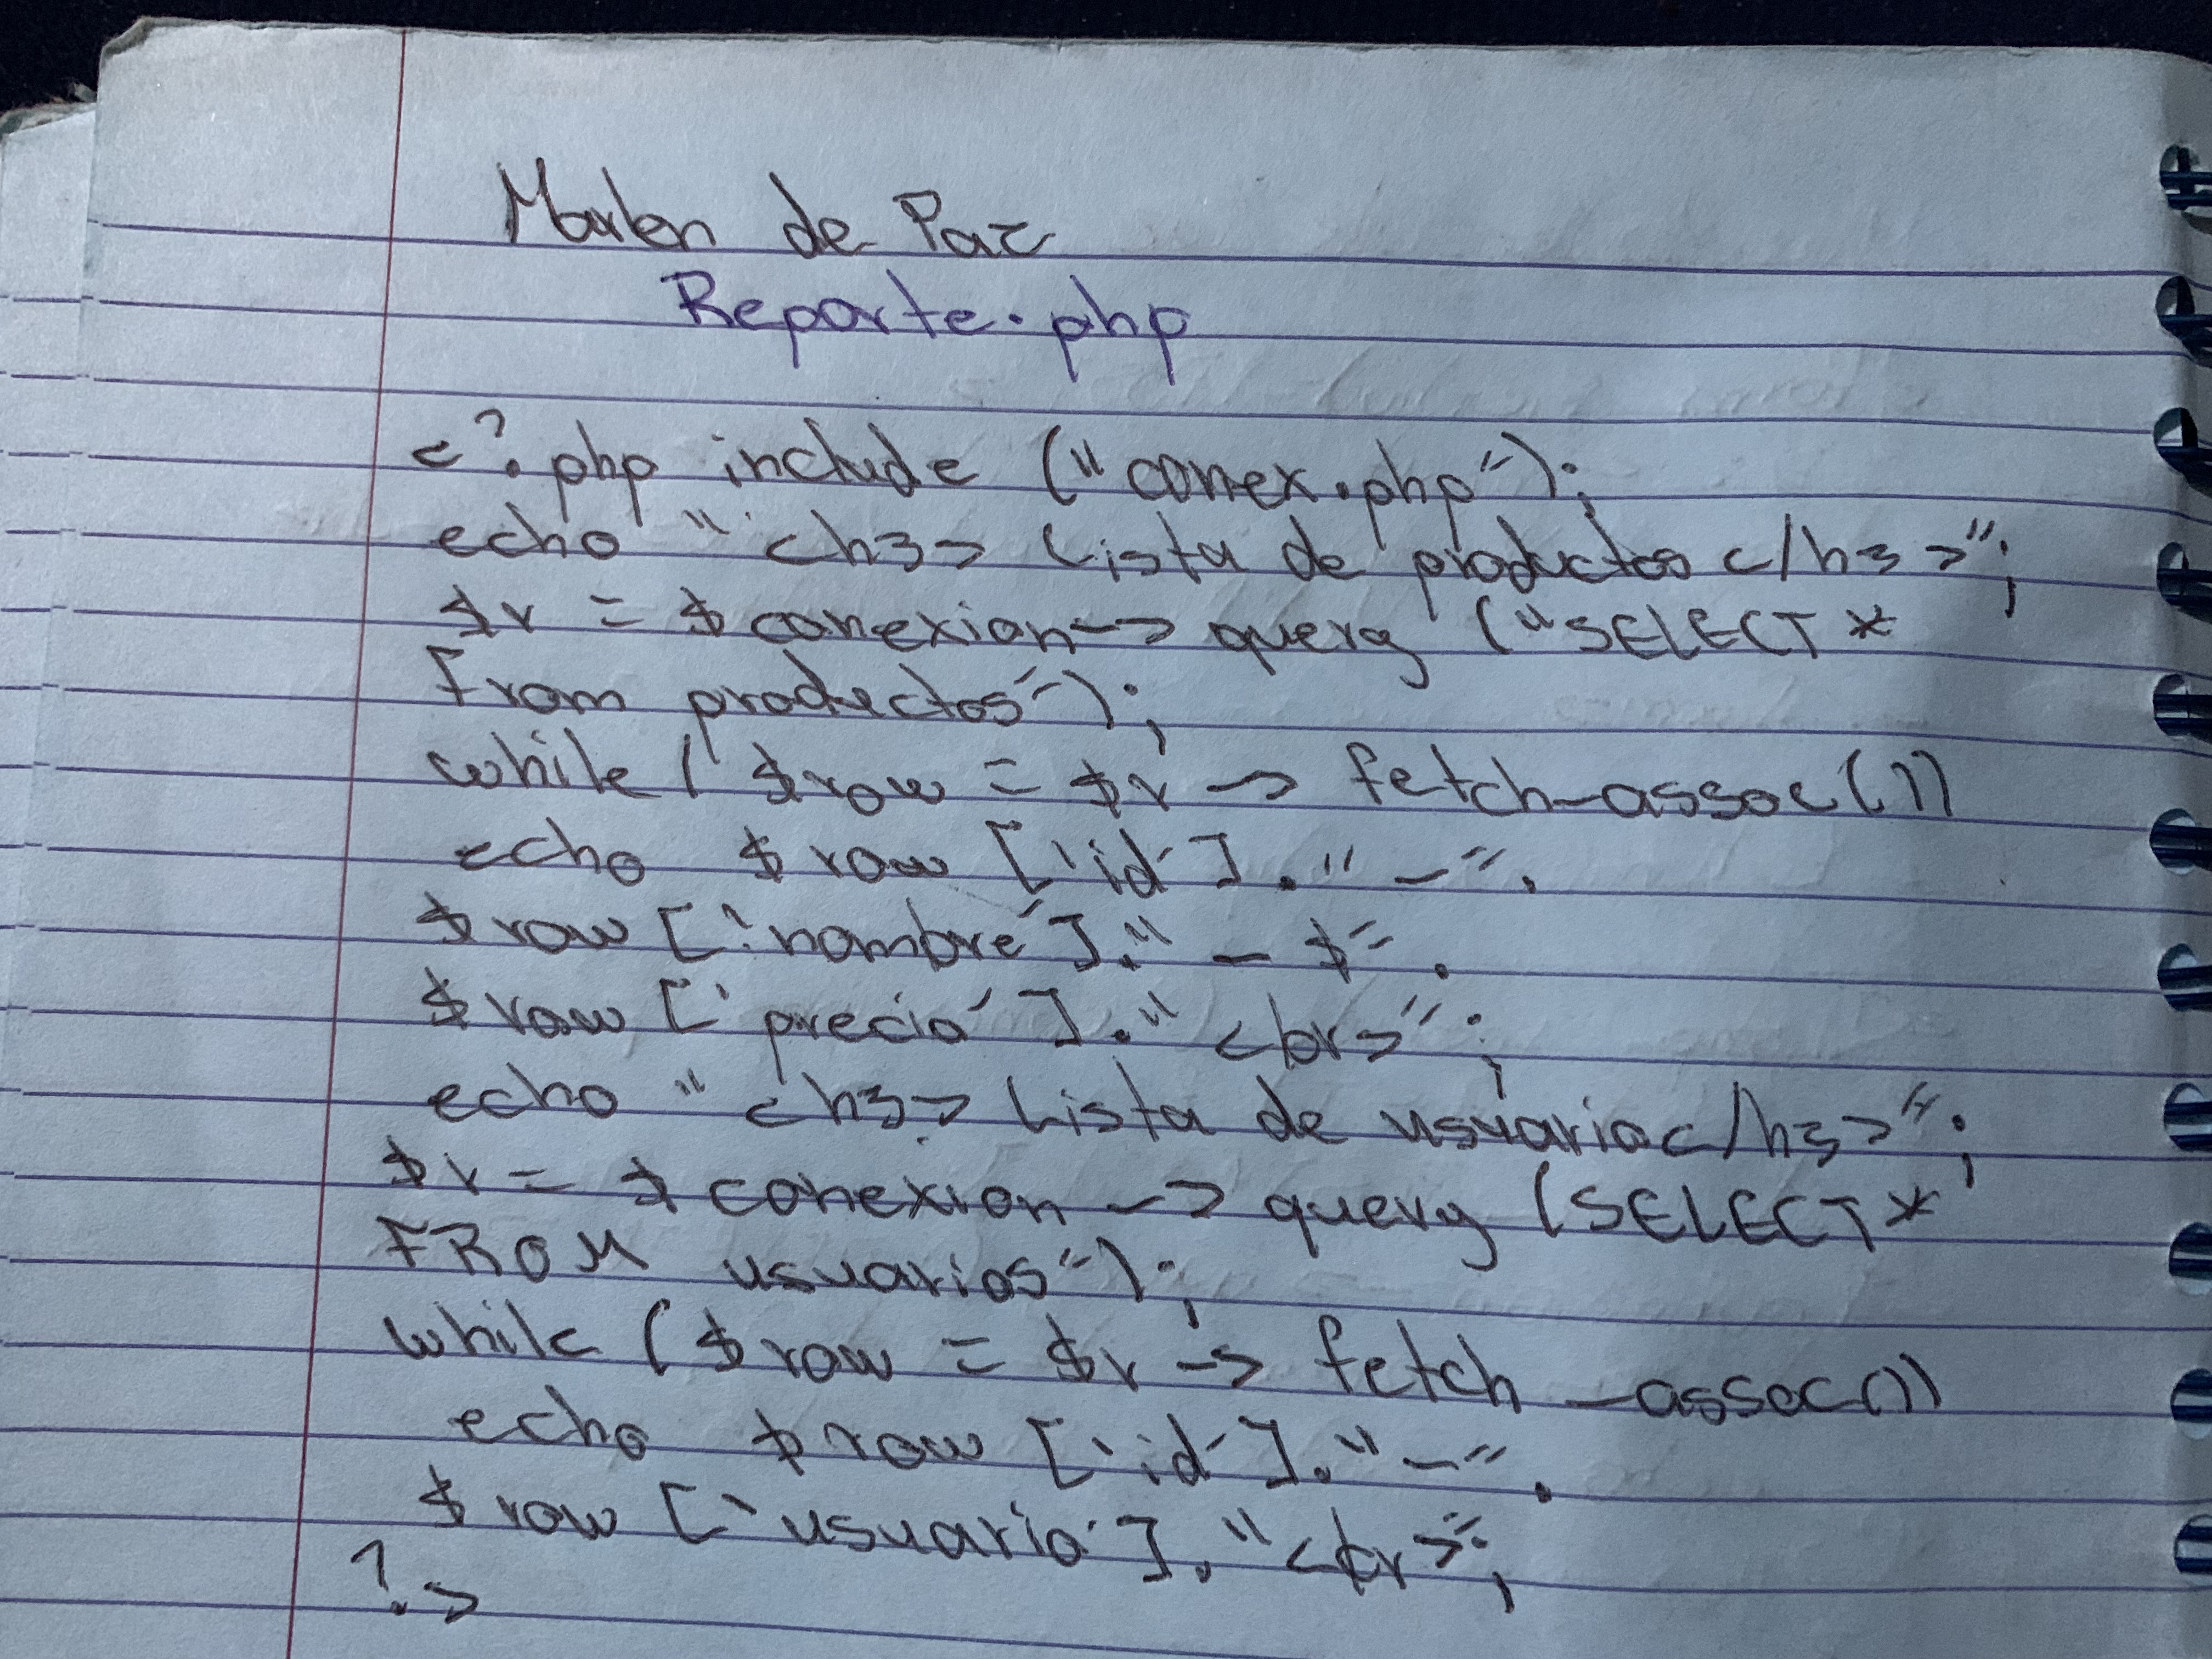 Marlen de Paz
Reporte.php
<?php include ("conex.php");
echo "<h3> Lista de productos </h3>";
$r = $conexion-> query ("SELECT *
From productos");
while ( $row = $r -> fetch_assoc())
echo $row ['id']." -".
$row ['nombre']." - $".
$row ['precio']." <br>";
echo "<h3> Lista de usuario</h3>";
$r = $conexion -> query (SELECT *
FROM usuarios");
while ($row = $r -> fetch _assoc())
echo $row ['id']." -".
$row ['usuario']. "<br>";
?>